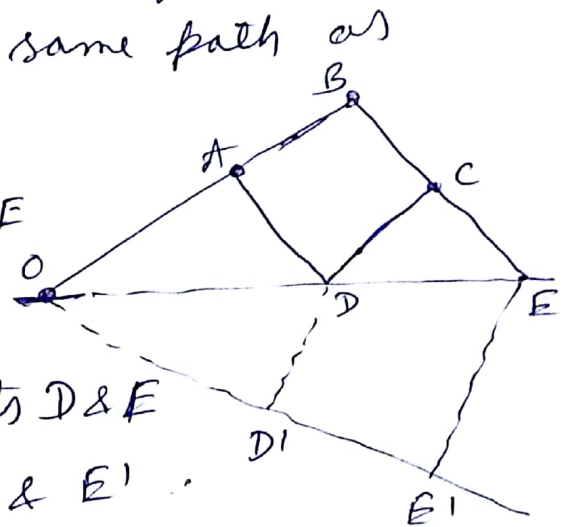 same path as
B
A
C
E
O
D
E
s D & E
D1
& E' .
E1